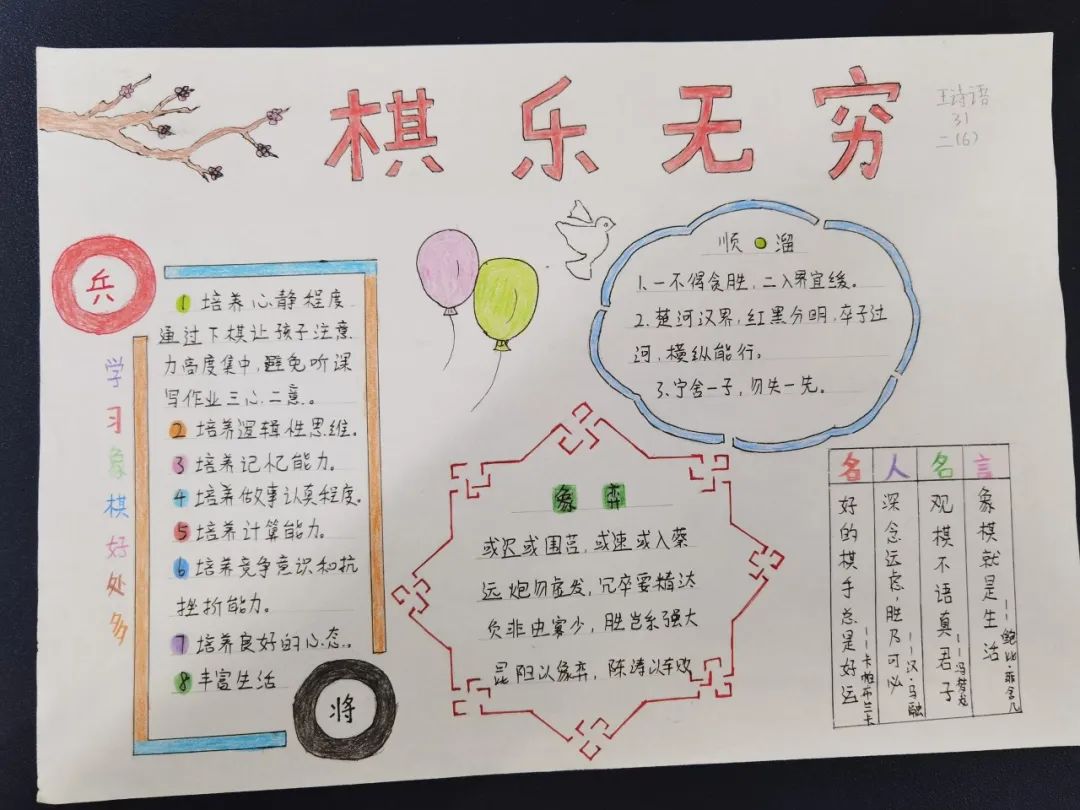 棋乐无穷
王诗语
31
二(6)
兵
学习象棋好处多
1 培养心静程度
通过下棋让孩子注意
力高度集中,避免听课
写作业三心二意。
2 培养逻辑性思维。
3 培养记忆能力。
4 培养做事认真程度。
5 培养计算能力。
6 培养竞争意识和抗
挫折能力。
7 培养良好的心态。
8 丰富生活
将
顺溜
1.一不得贪胜,二入界宜缓。
2.楚河汉界,红黑分明,卒子过
河,横纵能行。
3.宁舍一子,勿失一先。
象弈
或迟或围苦,或速或入蔡
远炮勿虚发,冗卒要精达
负非由寡少,胜岂系强大
昆阳以象弈,陈涛以车败
名人名言
好的棋手总是好运
--卡帕布兰卡
深念远虑,胜乃可必
--汉·马融
观棋不语真君子
--冯梦龙
象棋就是生活
--鲍比·菲舍尔